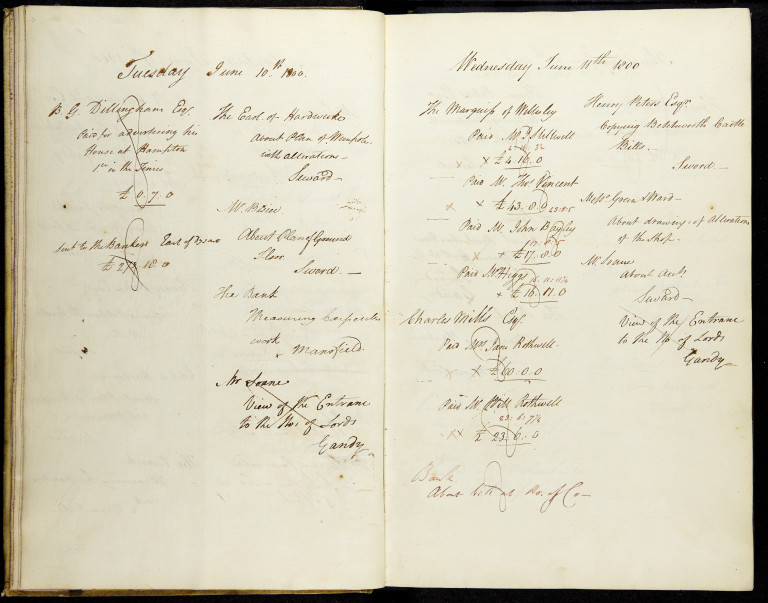 Tuesday June 10.th 1800.
B G. Dillingham Esqr.
Paid for advertising his
House at Hampton
1st in the Times
£ 0. 7. 0
Sent to the Bankers Earl of
£ 273 18. 0
The Earl of Hardwicke
About Plan of Wimpole
with alterations -
Seward -
Mr.
About Plan of Ground
Floor.
Seward. -
The Bank
Measuring Carpenters
work
Mansfield.
Mr Soane
View of the Entrane
to the Ho: of Lords
Gandy
Wednesday June 11th 1800
The Marquiss of Wellesley
Paid Mr. J. Stillwell
x £ 4. 16. 0
Paid Mr. Thos. Vincent
x x £ 43. 0. 0
Paid Mr. John Bayley
x x £ 17. 0. 0
Paid Mr Higgs
x £ 16. 11. 0
Charles Mills Esqr.
Paid Mrs Jane Rothwell
x x £ 60. 0. 0
Paid Mr. Rothwell
23. 6. 7½
x x £ 23. 6. 0
Bank
About at Ho. of Co -
Henry Peters Esqr.
Copying Betchworth Castle
Bills. -
Seward. -
Messrs Green & Ward -
About drawings of Alterations
of the Shop. -
Mr. Soane
About Accts.
Seward -
View of the Entrane
to the Ho. of Lords
Gandy